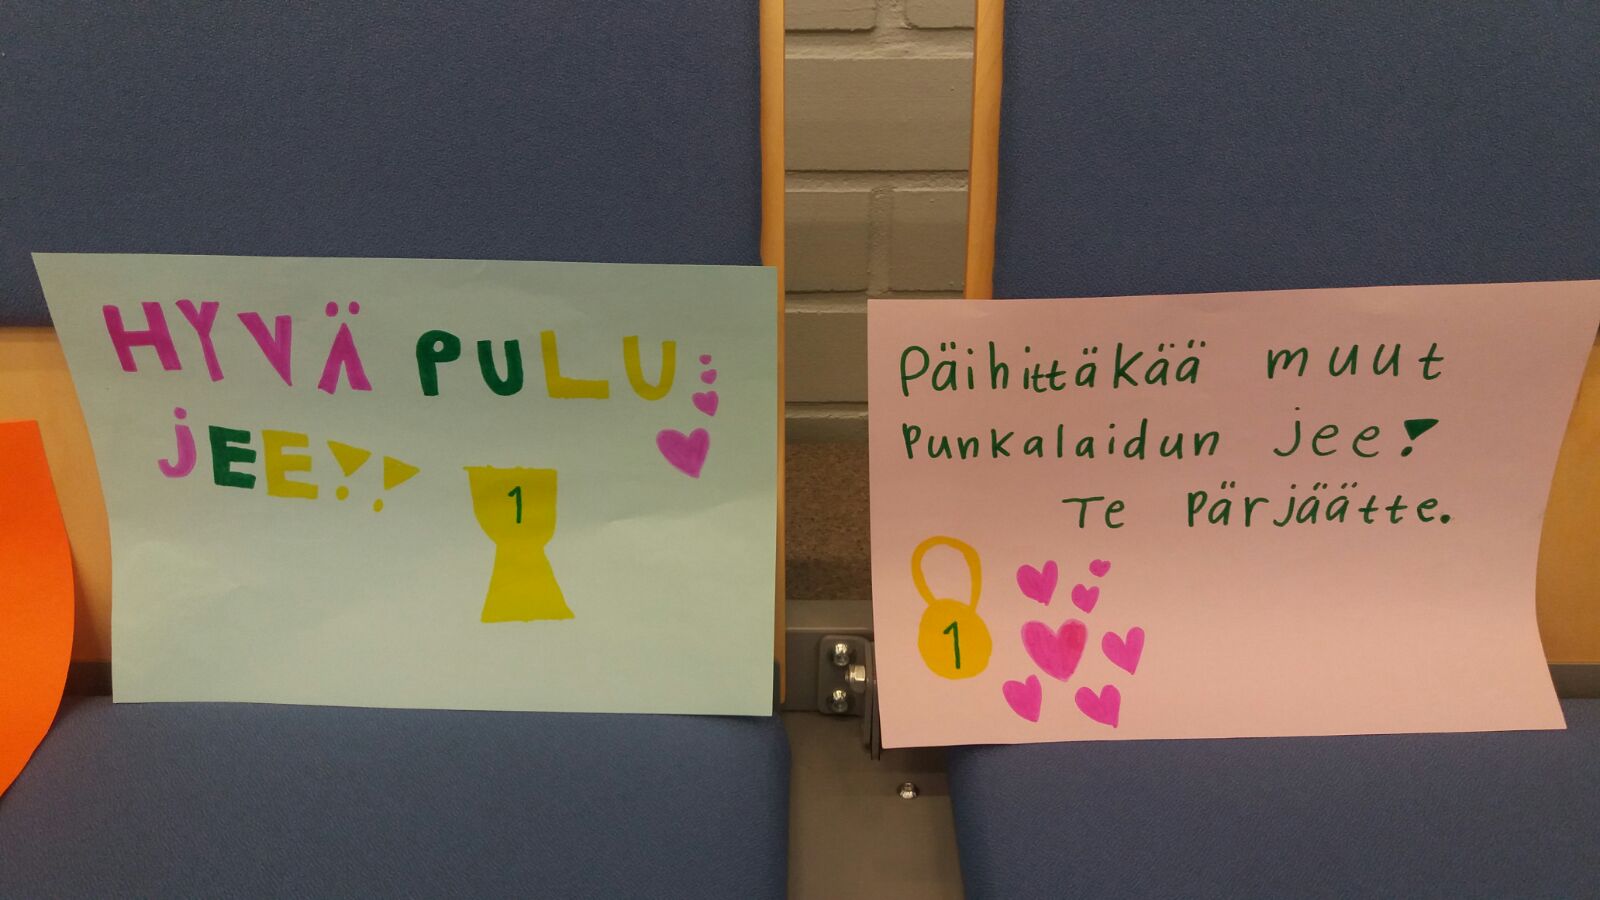 HYVÄ PULU
JEE!!
1
Päihittäkää muut
Punkalaidun jee!
Te Pärjäätte.
1